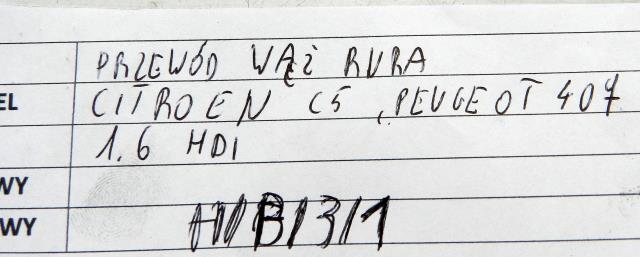 PRZEWÓD WĄŻ RURA
EL CITROEN C5, PEUGEOT 407
1.6 HDI
WY
WY H/B/3/1